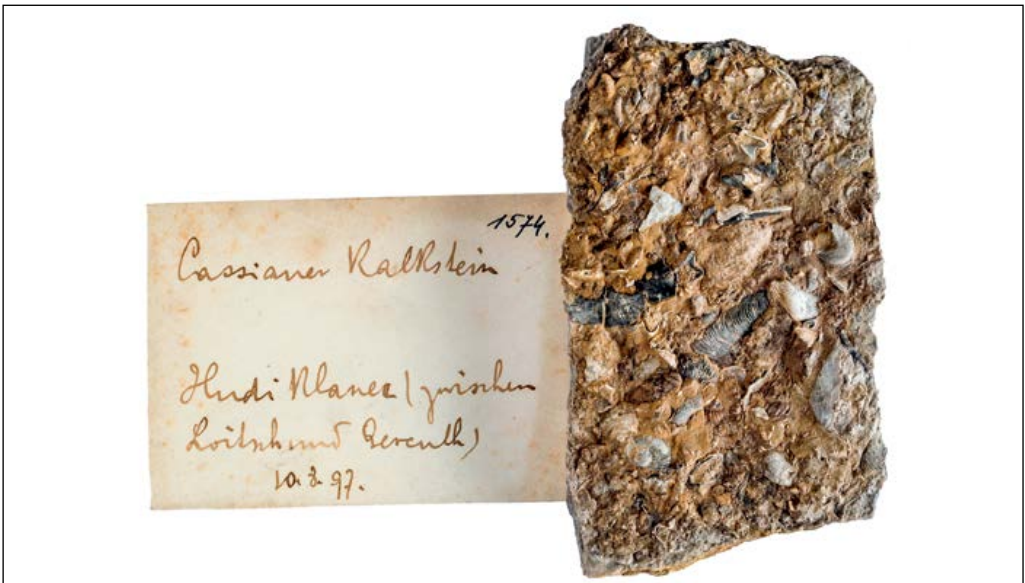 1574.
Cassianer Kalkstein
Hudi Klanec (zwischen
Loitsch und Gereuth)
10.8.97.